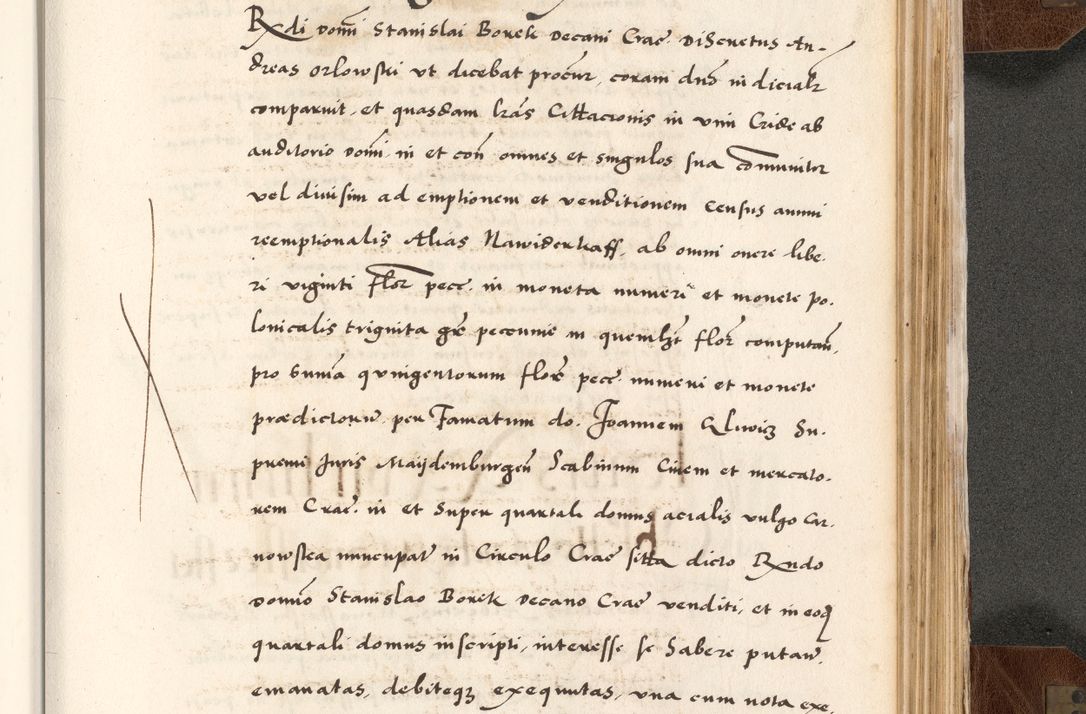 Rndi domi Stanislai Borek Decani Crac. Discretus An-
dreas Orlowski ut dicebat procur, coram dno in dicialr
comparuit, et quasdam lras Cittacionis in vim Cride ab
auditorio domi. in et con omnes et singulos sua comuniter
vel divisim ad emptionem et venditionem census annui
reemptionalis Alias Nawiderkaff, ab omni onere libe.
ri viginti flor pecc. in moneta numeri et monete po.
lonicalis triginta gr peccunie in quemlzt flor computan,
pro Suma quingentorum flor pecc. numeri et monete
prædictoru. per Famatum do. Joannem Su.
premi Juris Maijdemburgen Scabinum Civem et mercato.
rem Crac. in et super quartali domus acialis vulgo Cr.
nowska nuncupat in Circulo Crac sitta dicto Rndo
Domino Stanislao Borek Decano Crac venditi, et in eoq
quartali domus inscripti, interesse se habere putan.
emanatas, debiteqz exequutas, una cum nota exe.